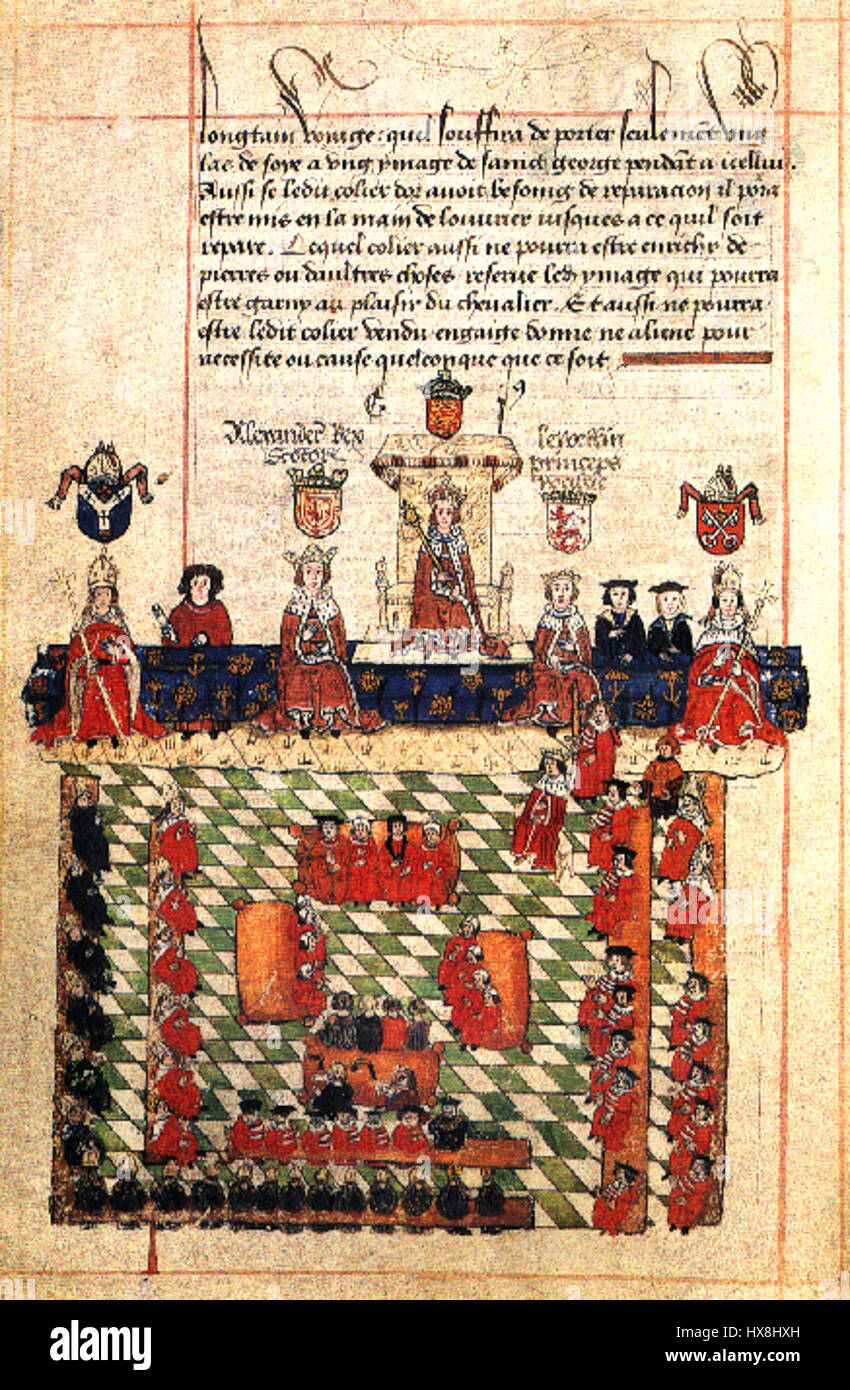 longtain voiage: quil souffira de porter seulement ung
las de soye a ung ymage de sainct george pendāt a icellui.
Aussi se ledit colier dor avoit besoing de reparacion il porra
estre mis en la main de louurier iusques a ce quil soit
repare. Lequel colier aussi ne pourra estre enrichy de
pierres ou daultres choses reserve led ymage qui pourra
estre garny au plaisir du chevalier. Et aussi ne pourra
estre ledit colier vendu engaige donne ne aliene pour
necessite ou cause quelconque que ce soit
Alexander Rex
Scotor
princeps
a
alamy
alamy stock photo
HX8HXH
www.alamy.com